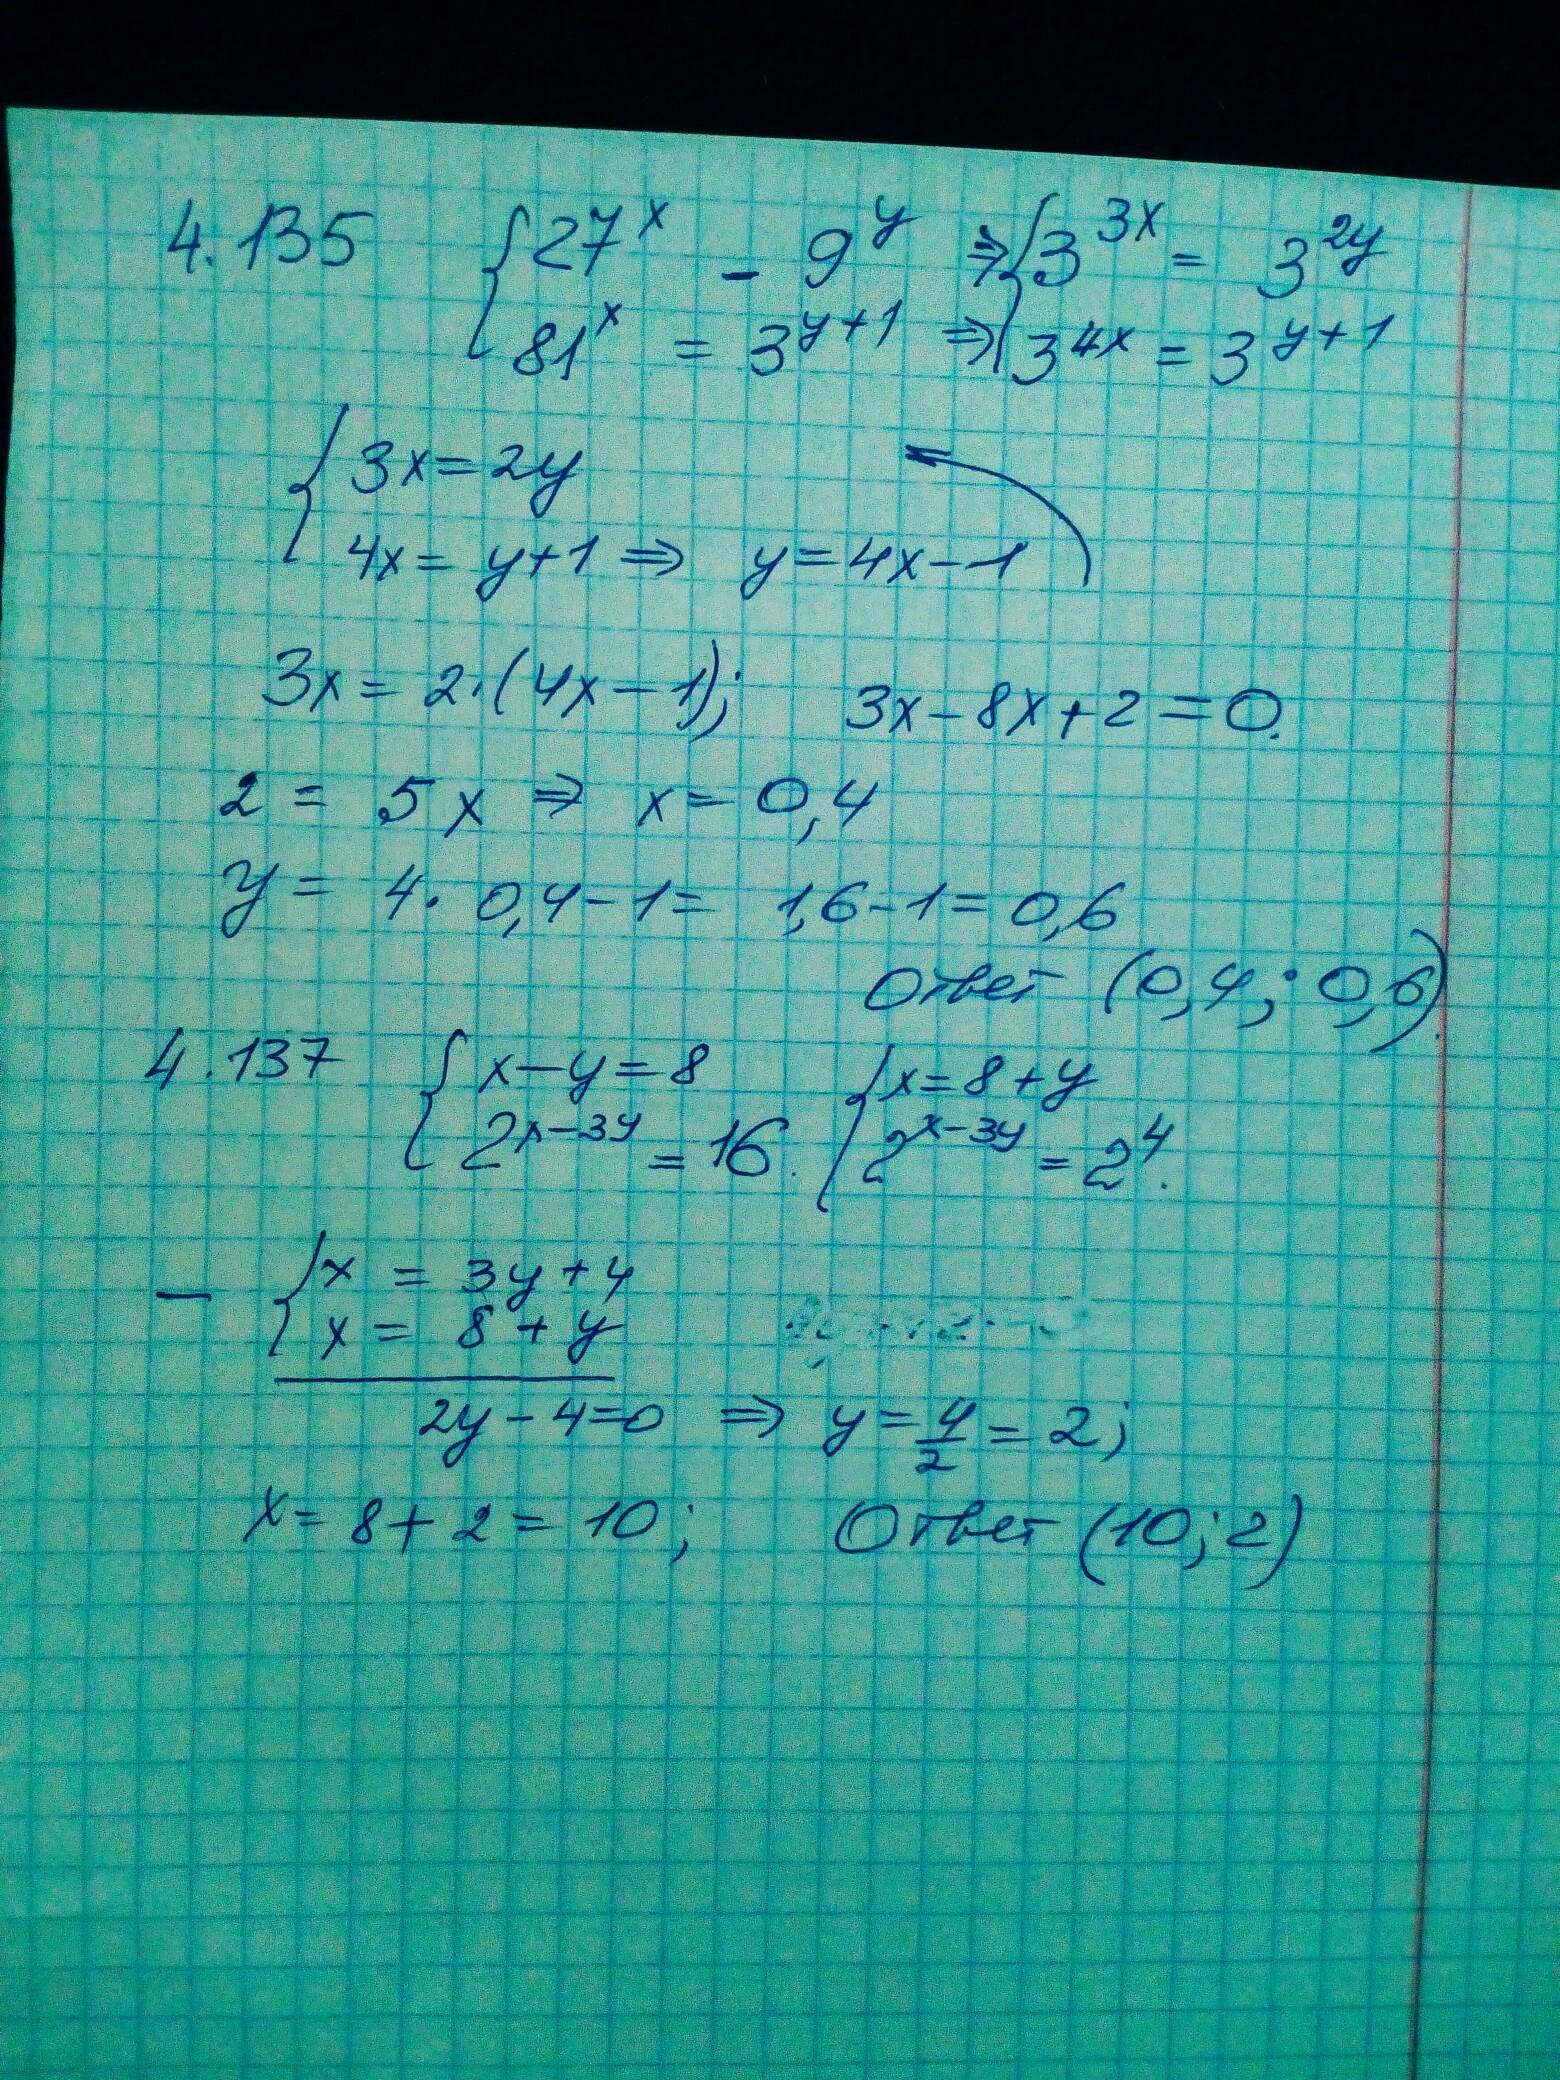 4.135 { 27^x - 9^y ⇒ { 3^3x = 3^2y
81^x = 3^y+1 ⇒ 3^4x = 3^y+1
{ 3x = 2y
4x = y+1 ⇒ y = 4x-1
3x = 2·(4x-1); 3x-8x+2=0.
2 = 5x ⇒ x = 0,4
y = 4·0,4-1 = 1,6-1 = 0,6
Ответ (0,4; 0,6)
4.137 { x-y=8 { x=8+y
2^x-3y = 16. 2^x-3y = 2^4.
- { x = 3y+4
x = 8+y
2y-4=0 ⇒ y = 4/2 = 2;
x = 8+2 = 10; Ответ (10; 2)